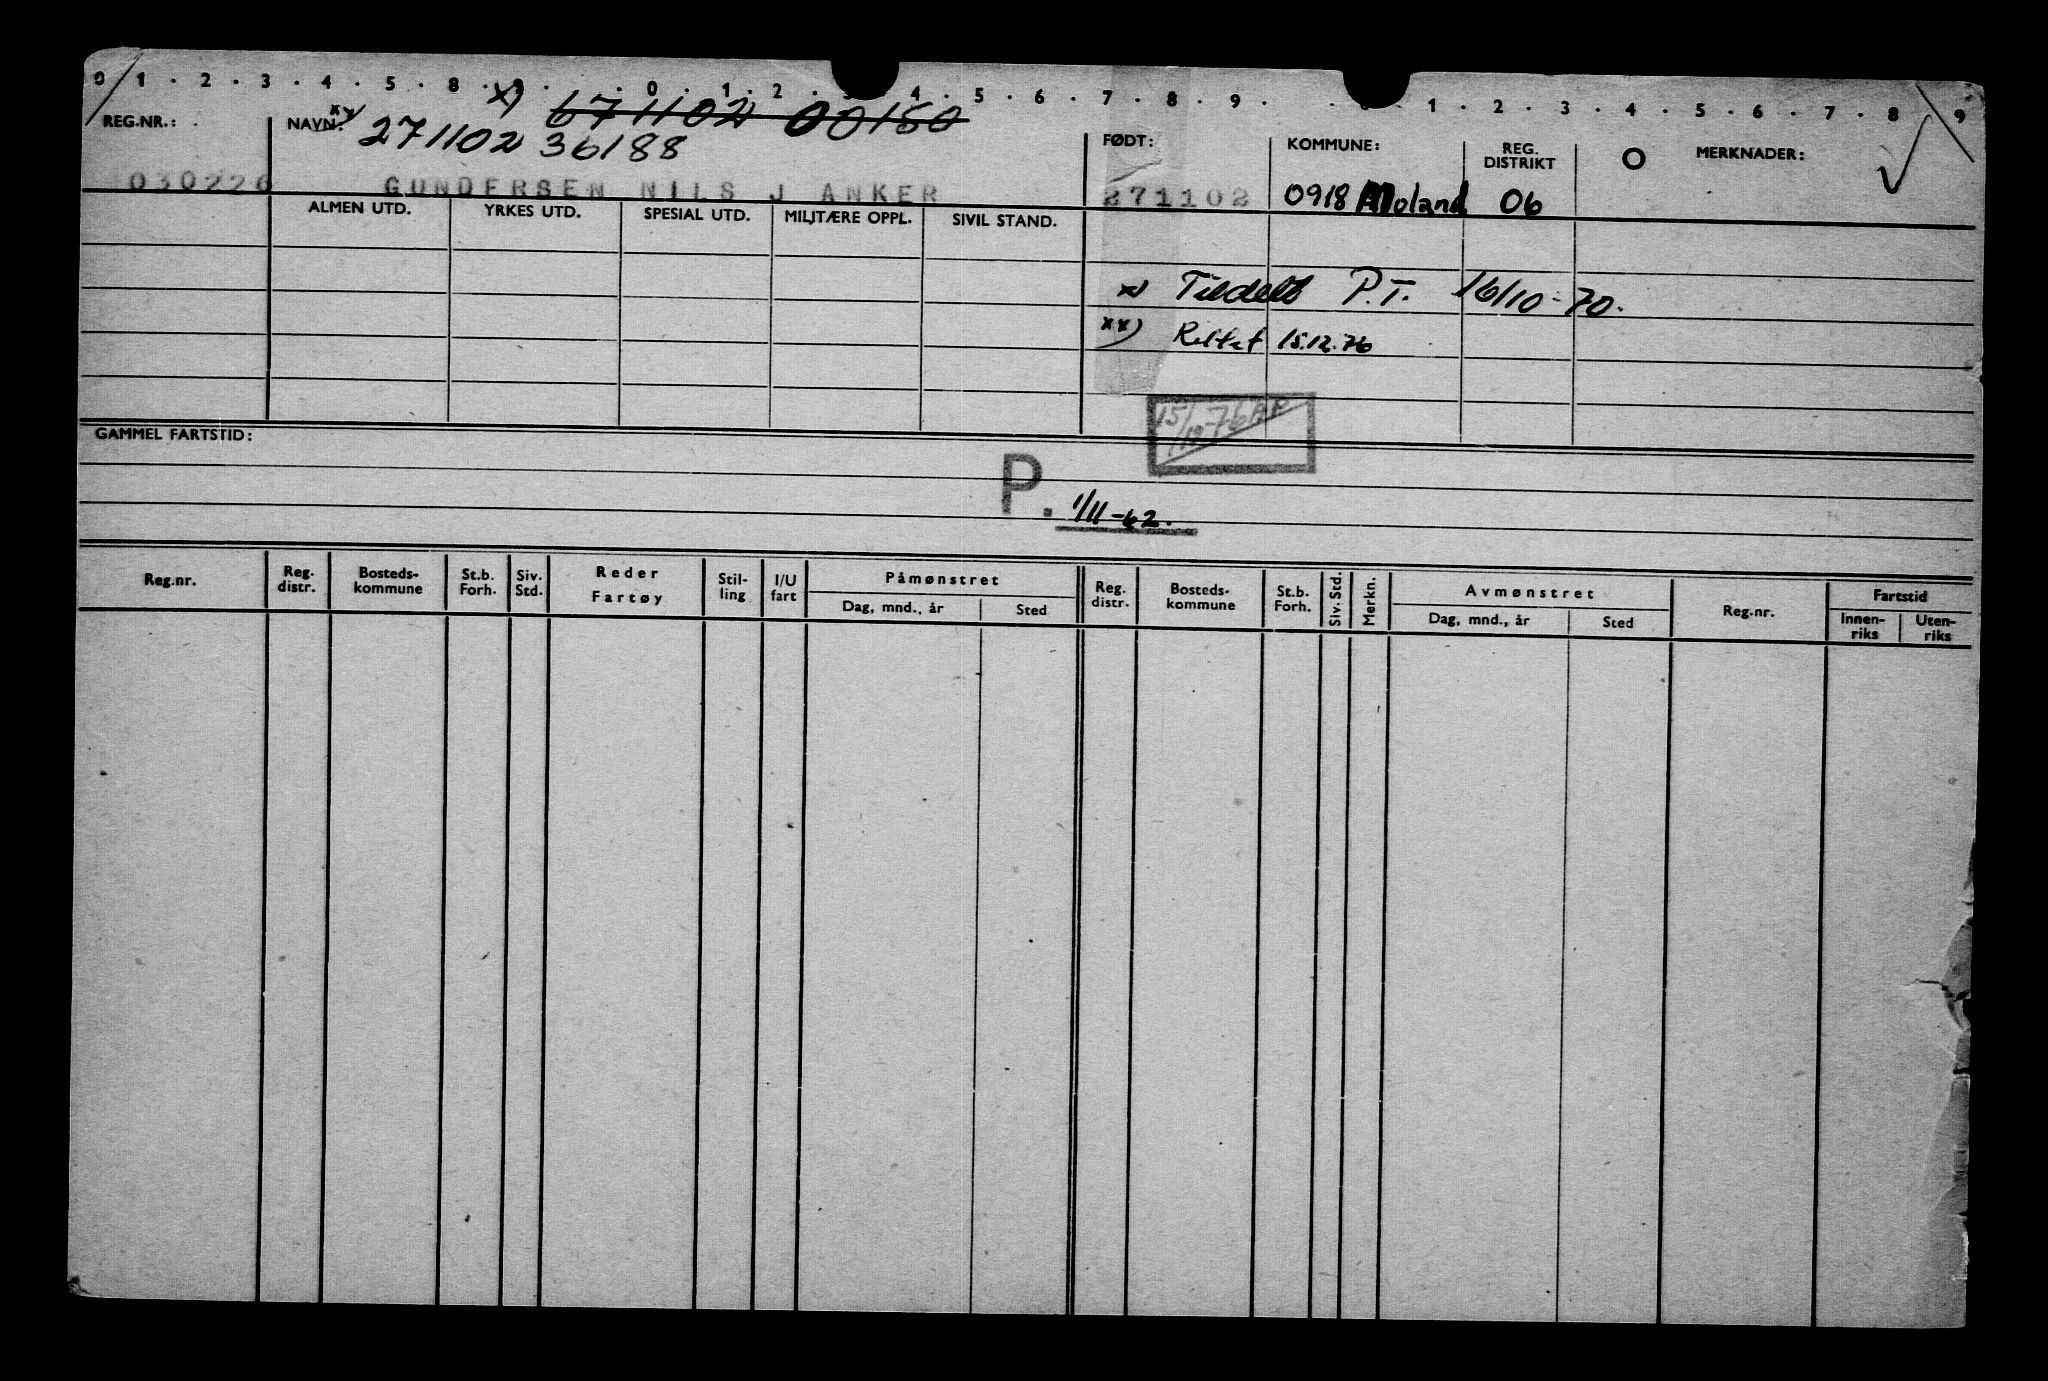 0 1 . 2 . 3 . 4 . 5 . 8 . 9 . . 0 . 1 . 2 . 3 . 4 . 5 . 6 . 7 . 8 . 9 . . 0 . 1 . 2 . 3 . 4 . 5 . 6 . 7 . 8 . 9
x) 671102 00150
REG.NR.: NAVN: xx) 271102 36188 FØDT: KOMMUNE: REG. DISTRIKT O MERKNADER:
030226 GUNDERSEN NILS J ANKER 271102 0918 Moland 06
ALMEN UTD. YRKES UTD. SPESIAL UTD. MILITÆRE OPPL. SIVIL STAND.
x) Tildelt P.T. 16/10-70.
xx) Rettet 15.12.76
15/12-76
GAMMEL FARTSTID:
P. 1/11-62.
Reg.nr. Reg. distr. Bosteds-kommune St.b. Forh. Siv. Std. Reder Fartøy Stil-ling I/U fart Påmønstret Reg. distr. Bosteds-kommune St.b. Forh. Siv. Std. Merkn. Avmønstret Reg.nr. Fartstid
Dag, mnd., år Sted Dag, mnd., år Sted Innen-riks Uten-riks